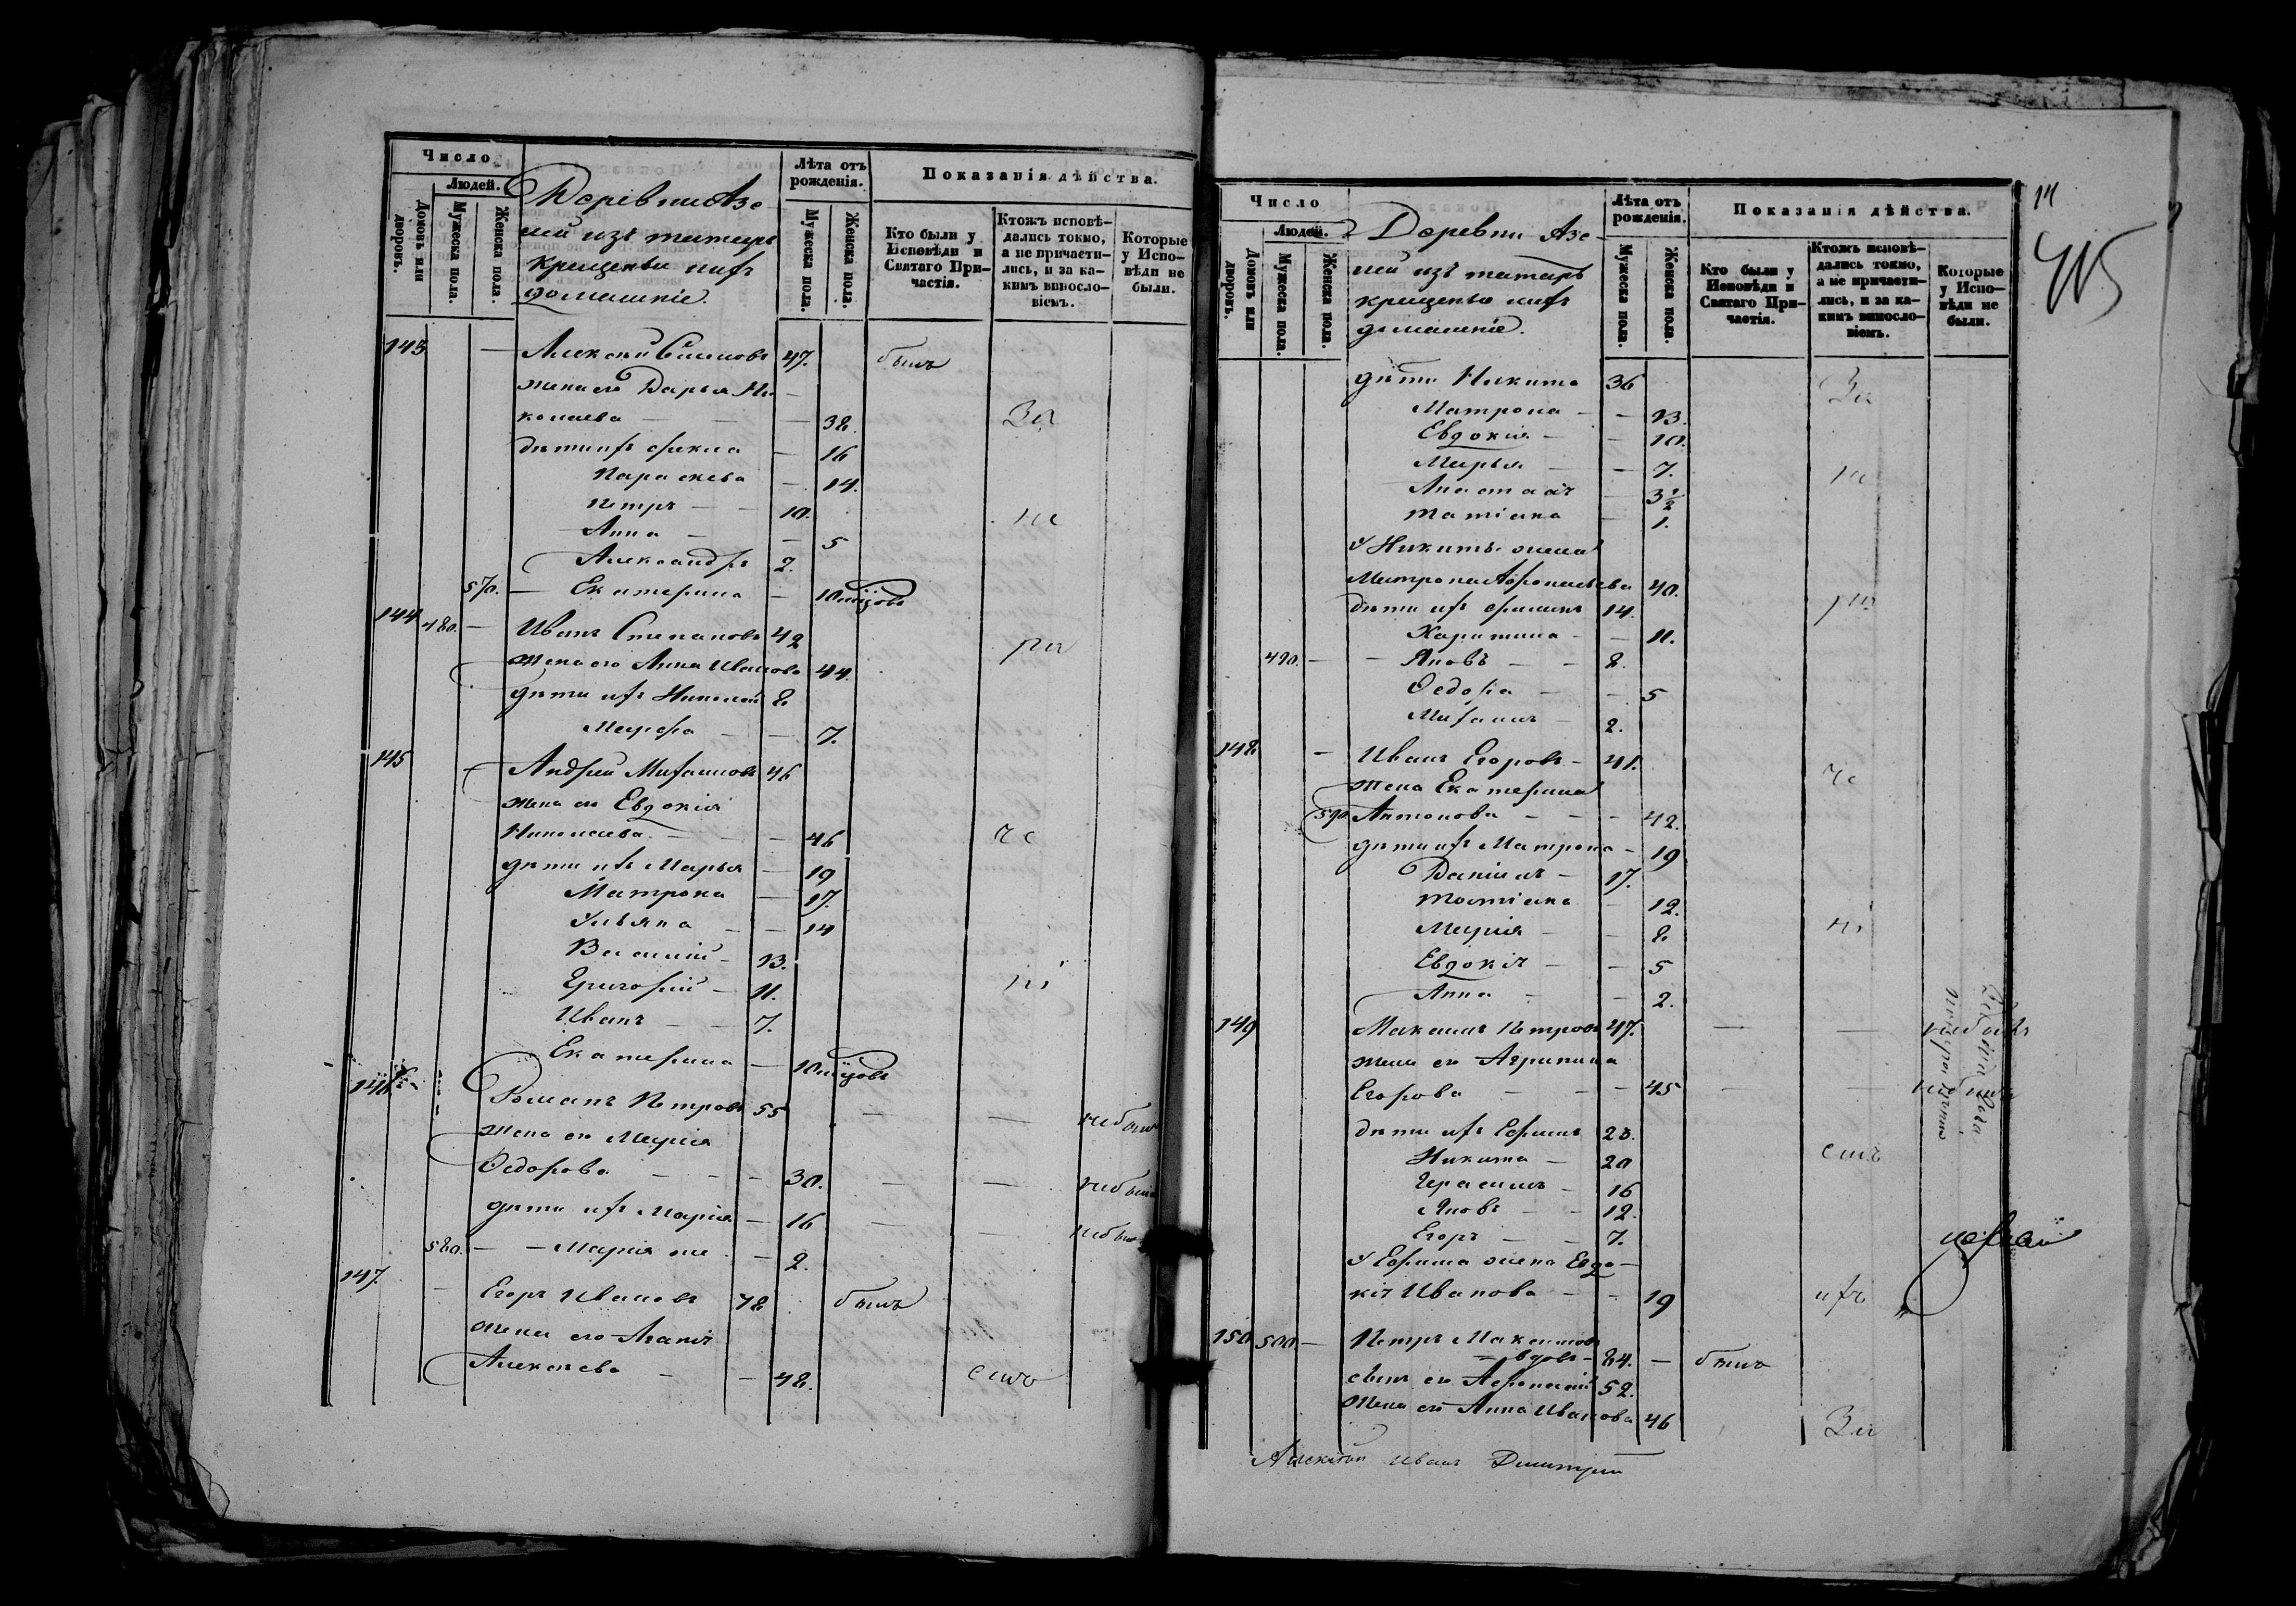 Число
Людей.
Домовъ или дворовъ.
Мужеска пола.
Женска пола.
Деревни Азе
ий изъ татаръ
крещеныхъ ихъ
домашніе.
Лѣта отъ рожденія.
Мужеска пола.
Женска пола.
Показанія дѣйства.
Кто были у Исповѣди и Святаго Причастія.
Ктожъ исповѣдались токмо, а не причастились, и за какимъ винословіемъ.
Которые у Исповѣди не были.
143 Алексѣй 47. былъ
жена его Дарья Ни
колаева 38. За
дѣти ихъ Фекла 16
Параскева 14.
Петръ 10. не
Анна 5
Александръ 2.
570. Екатерина 10 мѣсцовъ
144 480. Иванъ Степановъ 42
жена его Анна Иванова 44. ра
дѣти ихъ Николай 8
Марфа 7.
145 Андрей Михаиловъ 46
жена его Евдокія
Николаева 46 че
дѣти ихъ Марья 19
Матрона 17.
Ульяна 14
Василій 13.
Григорій 11. ні
Иванъ 7.
Екатерина 10 мѣсцовъ
146 Романъ Петровъ 55 небылъ
жена его Марія
Ѳедорова 30. небыла
дѣти ихъ Марія 16 небыла
580. Марія же 2.
147. Егоръ Ивановъ 78 былъ
жена его Агапія
Алексѣева 48. емъ
Число
Людей.
Домовъ или дворовъ.
Мужеска пола.
Женска пола.
Деревни Азе
ий изъ татаръ
крещеныхъ ихъ
домашніе.
Лѣта отъ рожденія.
Мужеска пола.
Женска пола.
Показанія дѣйства.
Кто были у Исповѣди и Святаго Причастія.
Ктожъ исповѣдались токмо, а не причастились, и за какимъ винословіемъ.
Которые у Исповѣди не были.
14
415
дѣти Никита 36 За
Матрона 13.
Евдокія 10.
Марья 7. не
Анастасія 3½
Татіана 1.
У Никиты жена
Матрона Афонасьева 40.
дѣти ихъ Филипъ 14. ра
Харитина 11.
490. Яковъ 8.
Ѳедора 5
Михаилъ 2.
148 Иванъ Егоровъ 41. че
жена Екатерина
590 Антонова 42.
дѣти ихъ Матрона 19
Даніилъ 17.
Татіана 12.
Марія 8 ні
Евдокія 5
Анна 2.
149 Максимъ Петровъ 47. небылъ
жена его Агрипина
Егорова 45 небыла
дѣти ихъ Ефимъ 23.
Никита 20 емъ
Герасимъ 16
Яковъ 12.
Егоръ 7.
У Ефима жена Евдо
кія Иванова 19 ихъ
150 500. Петръ Максимовъ
вдовъ 84. былъ
сынъ его Афонасій 52.
жена его Анна Иванова 46 За
Алексѣй Иванъ Димитрій